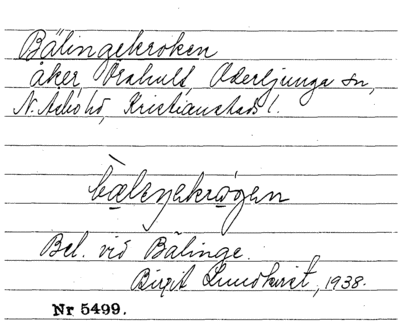 Bälingekroken
åker Örahult, Oderljunga sn,
N. Åsbo hd, Kristianstads l.
bæleŋekrωgen
Bel. vid Bälinge.
Birgit Lundkvist, 1938.
Nr 5499.